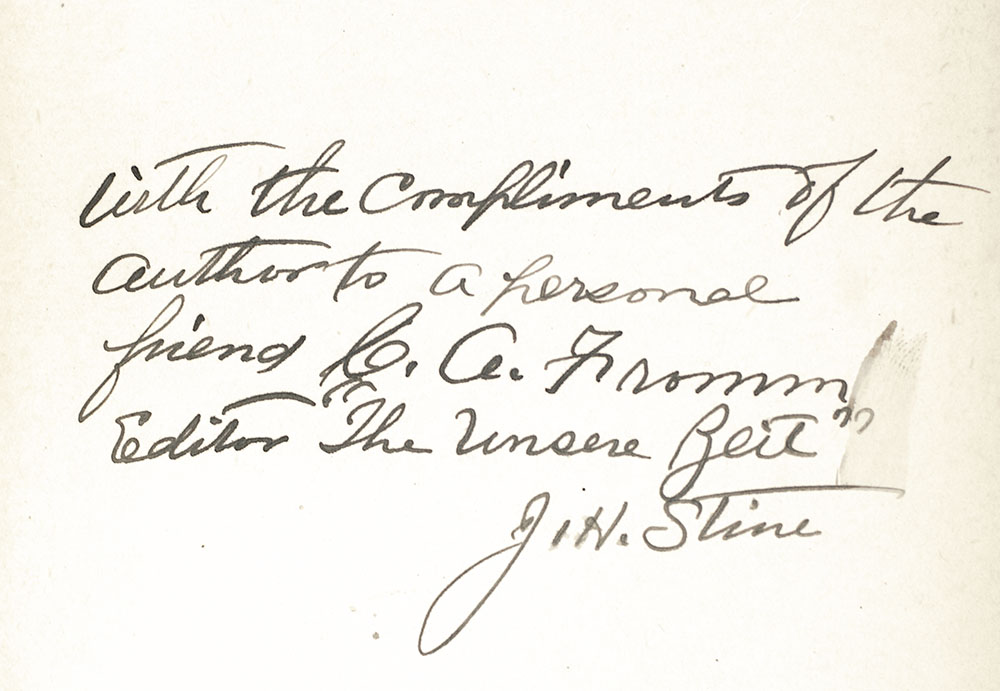 with the compliments of the
author to a personal
friend C. A. Fromm
Editor "The Unsere Zeit"
J. H. Stine